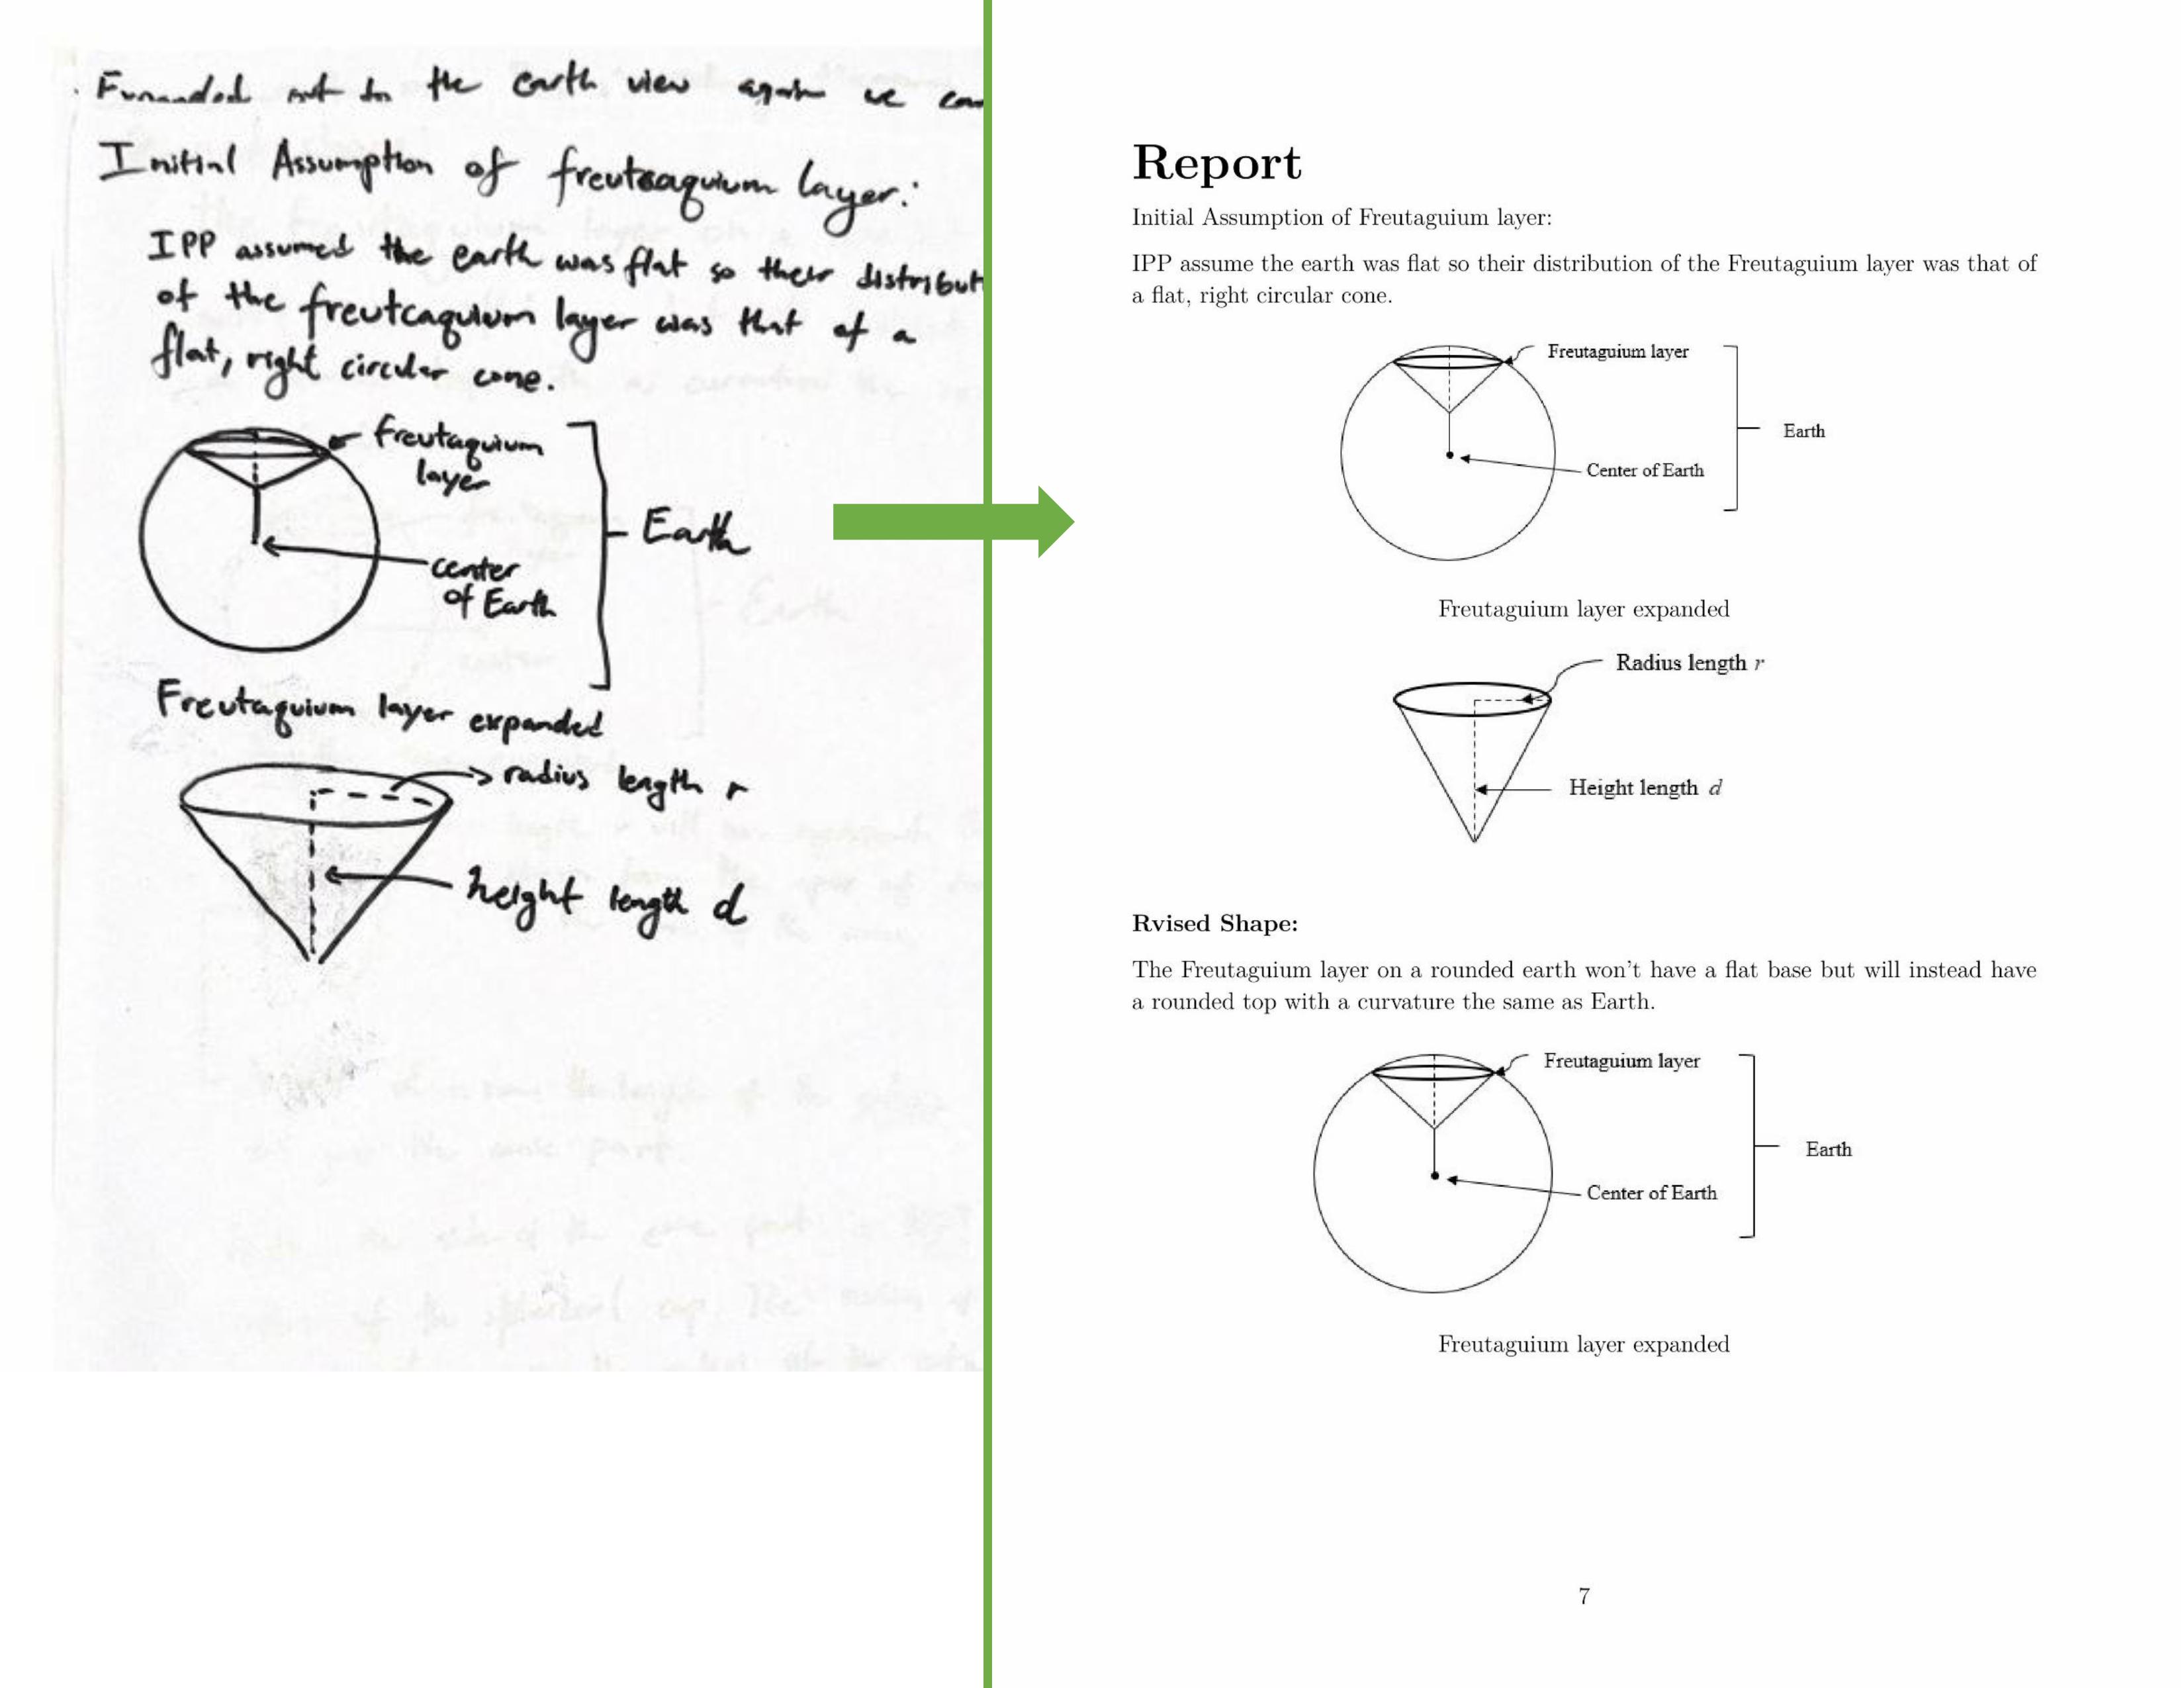 the earth view again we
Initial Assumption of freutcaquium layer:
IPP assumed the earth was flat so their distribut
of the freutcaquium layer was that of a
flat, right circular cone.
freutaquium
layer
Earth
center
of Earth
Freutaquium layer expanded
radius length r
height length d
Report
Initial Assumption of Freutaguium layer:
IPP assume the earth was flat so their distribution of the Freutaguium layer was that of
a flat, right circular cone.
Freutaguium layer
Earth
Center of Earth
Freutaguium layer expanded
Radius length r
Height length d
Rvised Shape:
The Freutaguium layer on a rounded earth won't have a flat base but will instead have
a rounded top with a curvature the same as Earth.
Freutaguium layer
Earth
Center of Earth
Freutaguium layer expanded
7